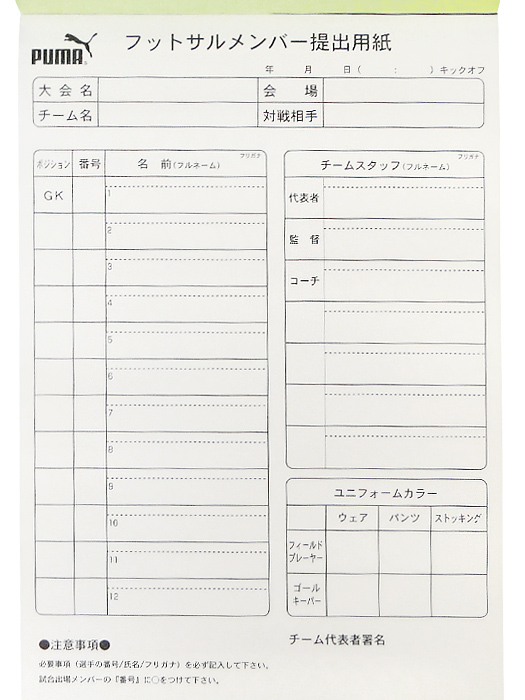 PUMA
フットサルメンバー提出用紙
年 月 日（ : ）キックオフ
大会名 会場
チーム名 対戦相手
ポジション 番号 名前(フルネーム) フリガナ
GK 1
2
3
4
5
6
7
8
9
10
11
12
チームスタッフ(フルネーム) フリガナ
代表者
監督
コーチ
ユニフォームカラー
ウェア パンツ ストッキング
フィールド
プレーヤー
ゴール
キーパー
●注意事項●
必要事項（選手の番号/氏名/フリガナ）を必ず記入して下さい。
試合出場メンバーの『番号』に○をつけて下さい。
チーム代表者署名